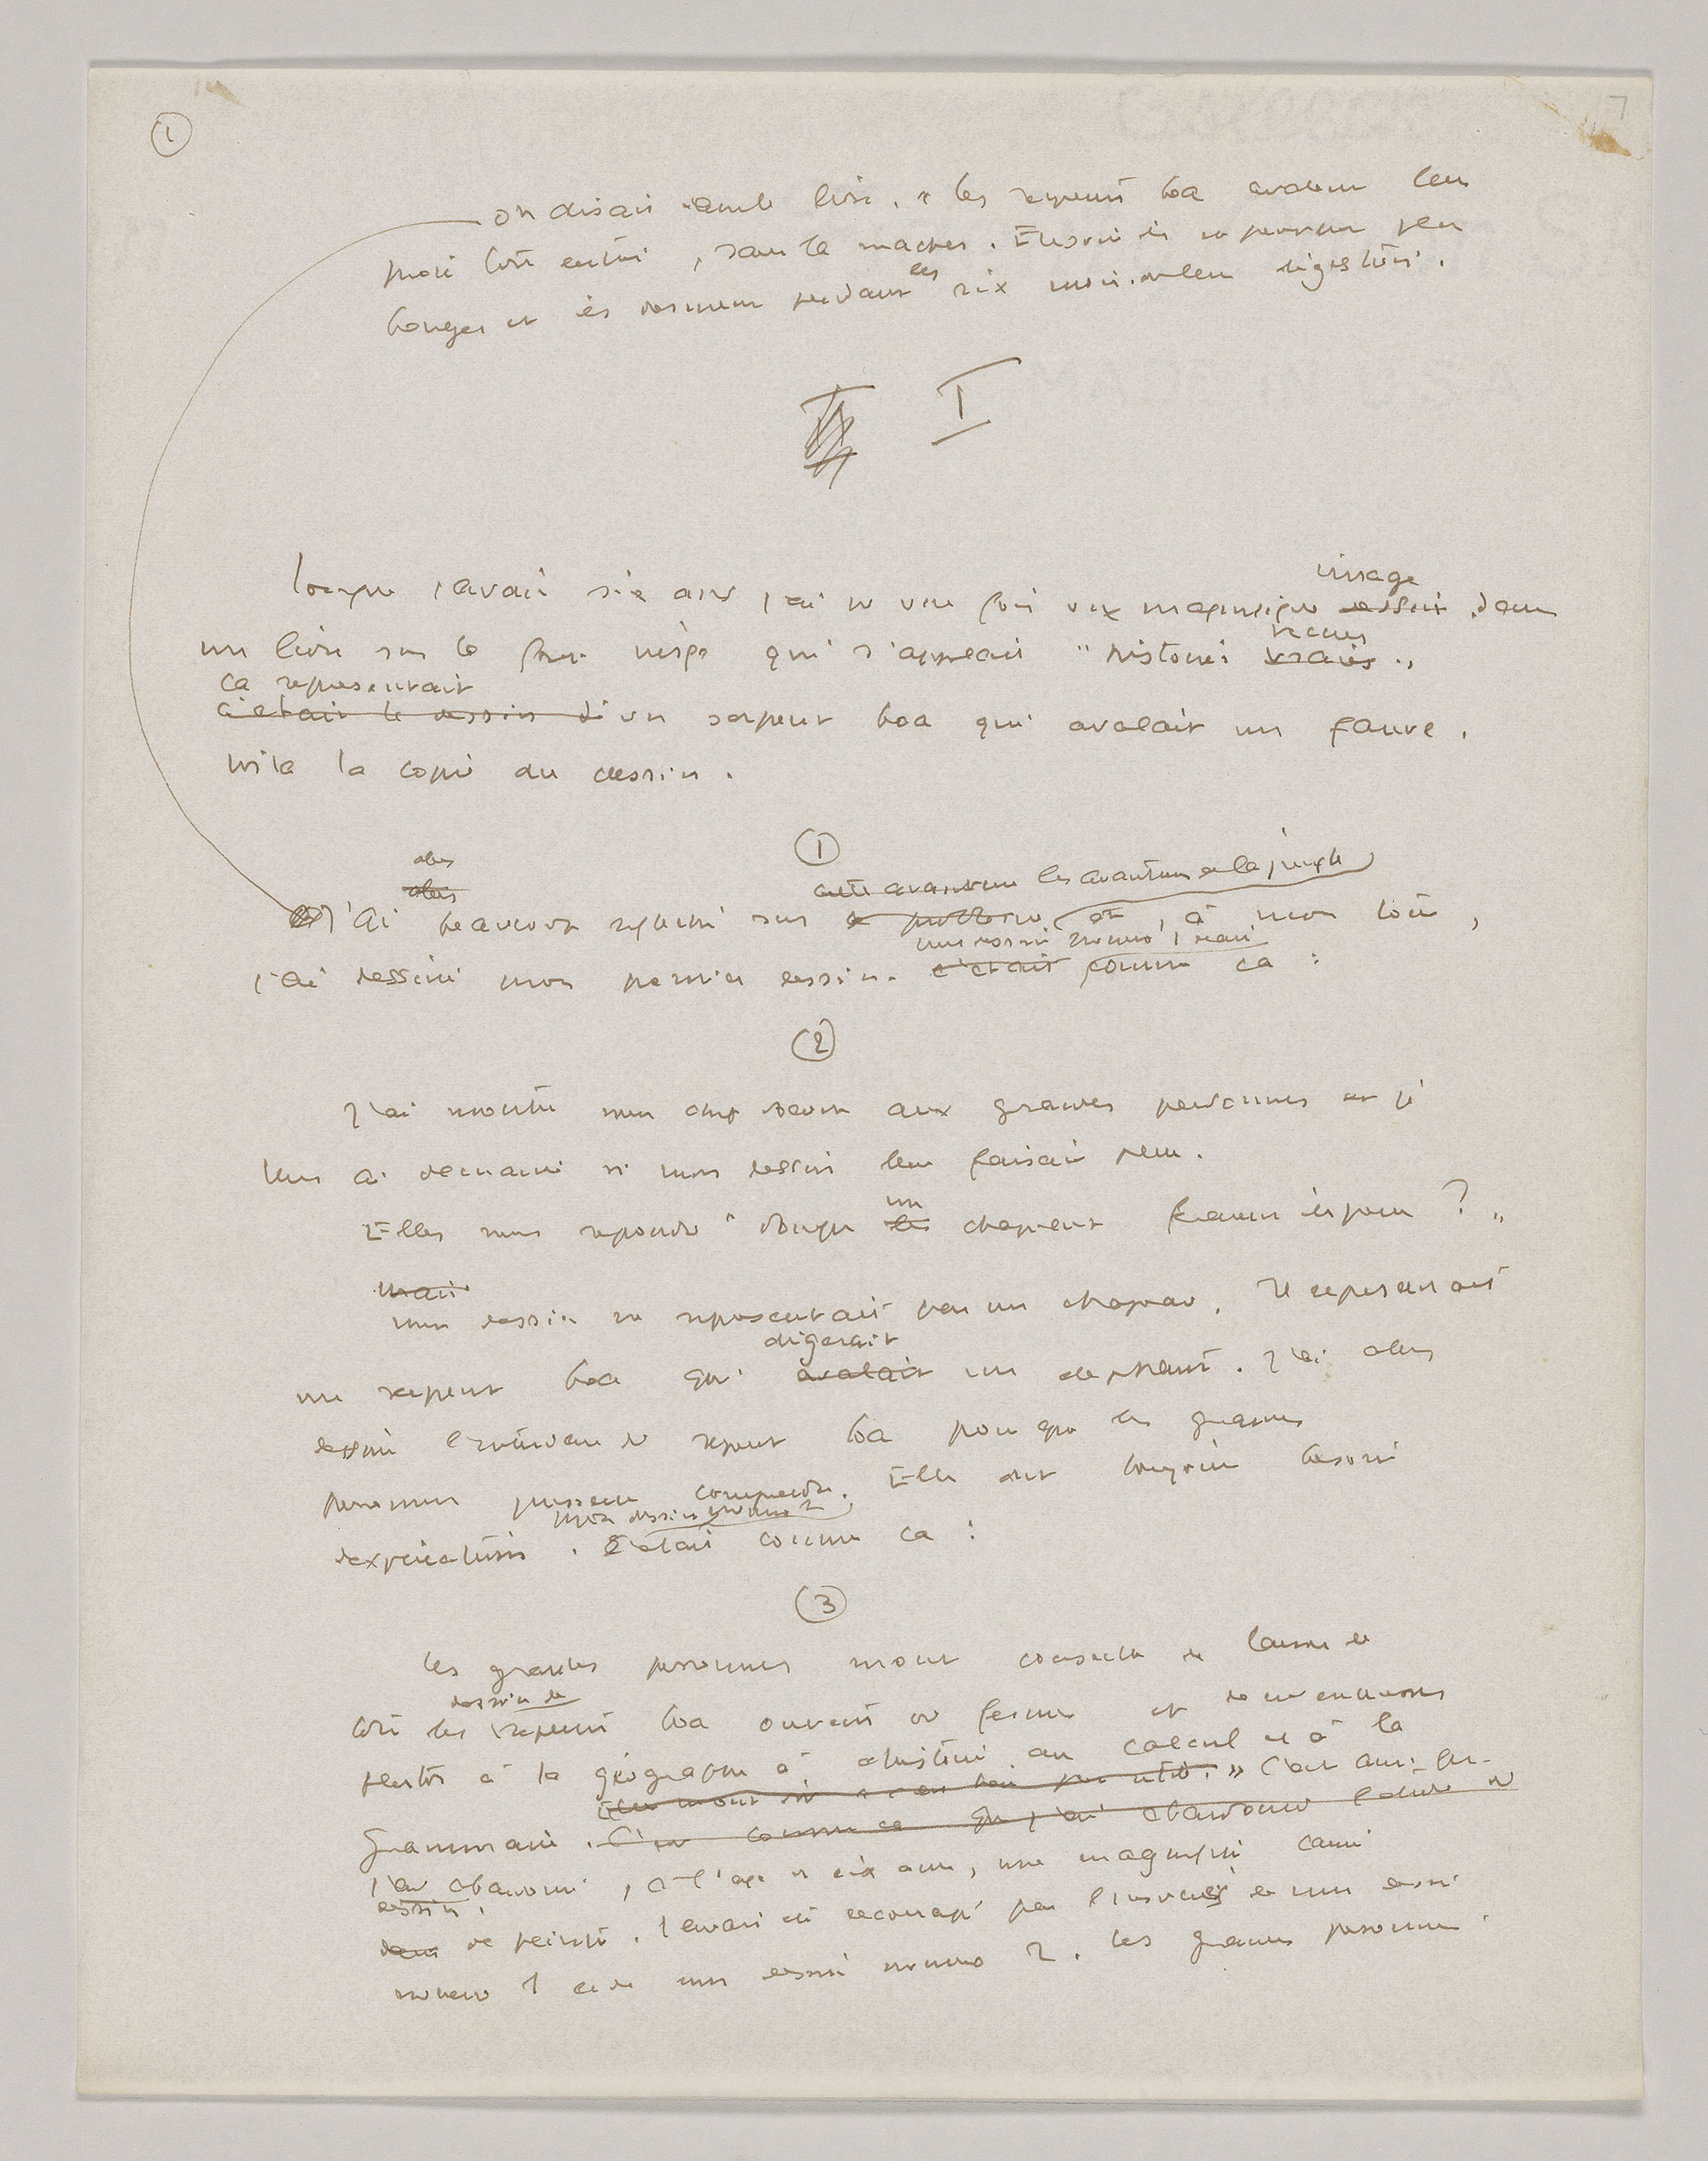 1
7
on disait dans le livre : « les serpents boa avalent leur
proie tout entière, sans la macher. Ensuite ils ne peuvent plus
bouger et ils dorment pendant les six mois de leur digestion.
I
image
Lorsque j'avais six ans j'ai vu une fois une magnifique dessin dans
un livre sur la foret vierge qui s'appelait "histoires vraies"
vecues
ça representait
c'etait le dessin d'un serpent boa qui avalait un fauve.
voila la copie du dessin.
1
alors
alors
cette aventure les aventures de la jungle
J'ai beaucoup reflechi sur et, à mon tour,
mon dessin numero 1 etait
j'ai dessiné mon premier dessin. c'etait comme ca :
2
J'ai montré mon chef d'œuvre aux grandes personnes et je
leur ai demandé si mon dessin leur faisait peur.
un
Elles m'ont repondu "Pourquoi les chapeaux feraient ils peur ? "
mais
mon dessin ne representait pas un chapeau. Il representait
digerait
un serpent boa qui avalait un elephant. J'ai alors
dessiné l'interieur du serpent boa pour que les grandes
personnes puissent comprendre. Elles ont toujours besoin
mon dessin numero 2
d'explications. C'etait comme ca :
3
Les grandes personnes m'ont conseillé de laisser de
dessins de
coté les serpents boa ouverts ou fermés et de m'interesser
plutot à la géographie à l'histoire au calcul et à la
Elles m'ont dit » C'est ainsi que
grammaire. C'est comme ca que j'ai abandonné
j'ai abandonné, à l'age de six ans, une magnifique carriere
dessin.
de peintre. J'avais été decouragé par l'insucces de mon dessin
numero 1 et de mon dessin numero 2. Les grandes personnes